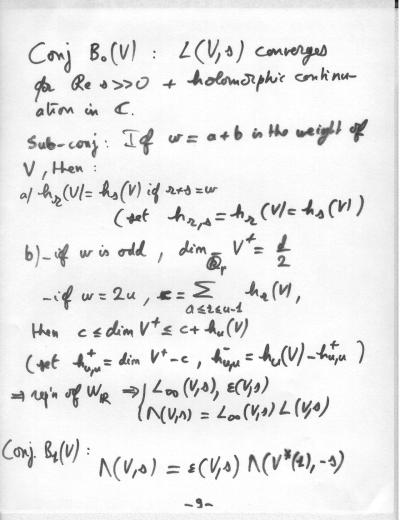 Conj B₀(V) : L(V,s) converges
for Re s >> 0 + holomorphic continu-
ation in ℂ.
Sub-conj : If w = a+b is the weight of
V, then :
a) h_r(V) = h_s(V) if r+s = w
(set h_{r,s} = h_r(V) = h_s(V))
b) - if w is odd, dim_{ℚ̄_p} V⁺ = d/2
- if w = 2u, c = Σ_{a≤r≤u-1} h_r(V),
then c ≤ dim V⁺ ≤ c + h_u(V)
(set h⁺_{u,u} = dim V⁺ - c, h⁻_{u,u} = h_u(V) - h⁺_{u,u})
⇒ rep'n of W_ℝ ⇒ L_∞(V,s), ε(V,s)
Λ(V,s) = L_∞(V,s) L(V,s)
Conj. B₁(V) :
Λ(V,s) = ε(V,s) Λ(V*(1), -s)
- 9 -